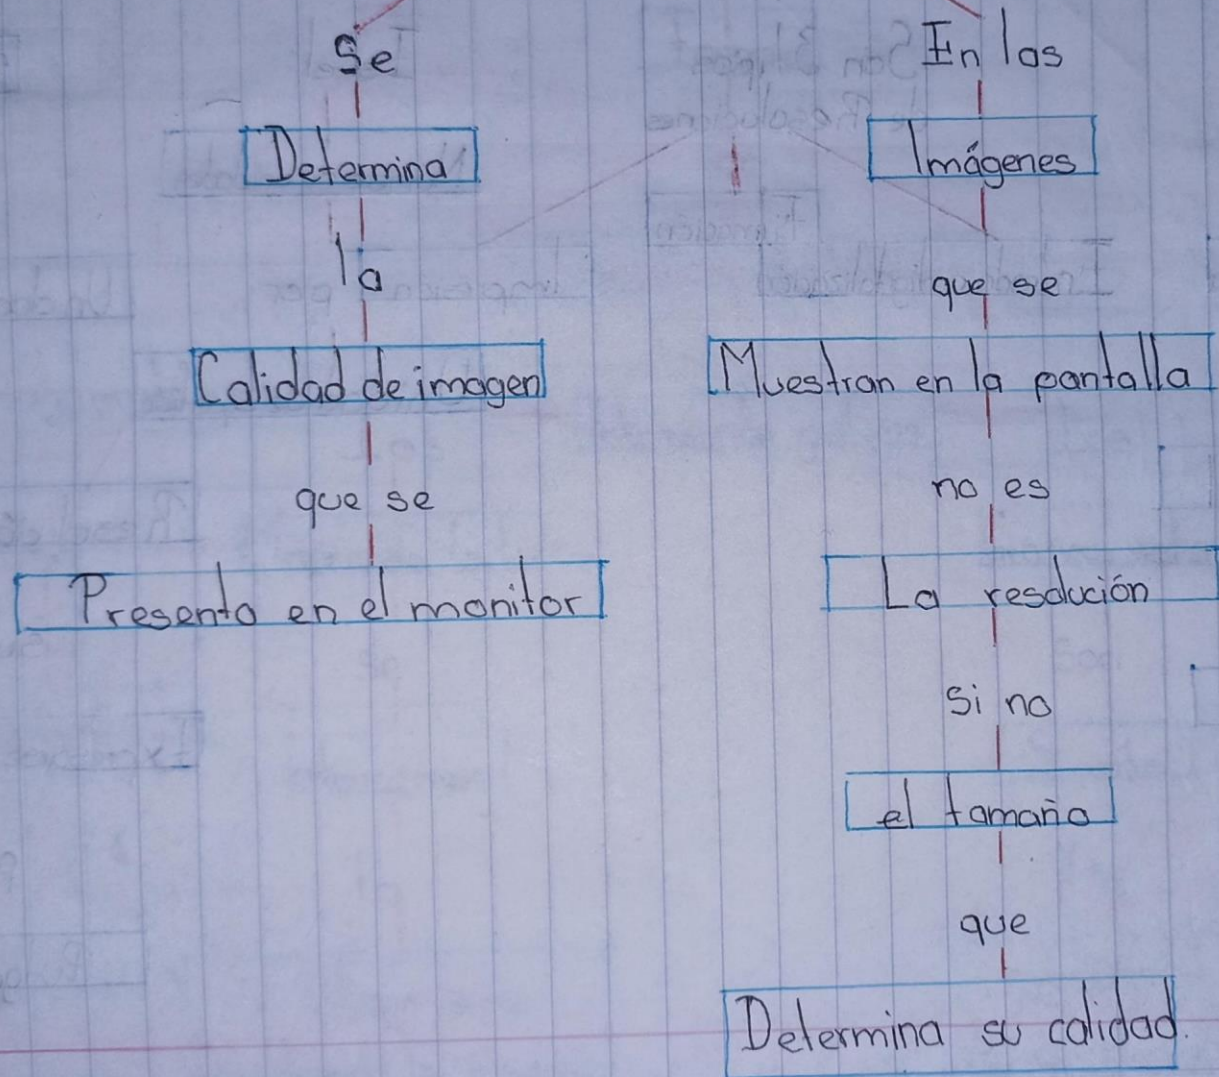 Se
Determina
la
Calidad de imagen
que se
Presenta en el monitor
En las
Imágenes
que se
Muestran en la pantalla
no es
La resolución
si no
el tamaño
que
Determina su calidad.